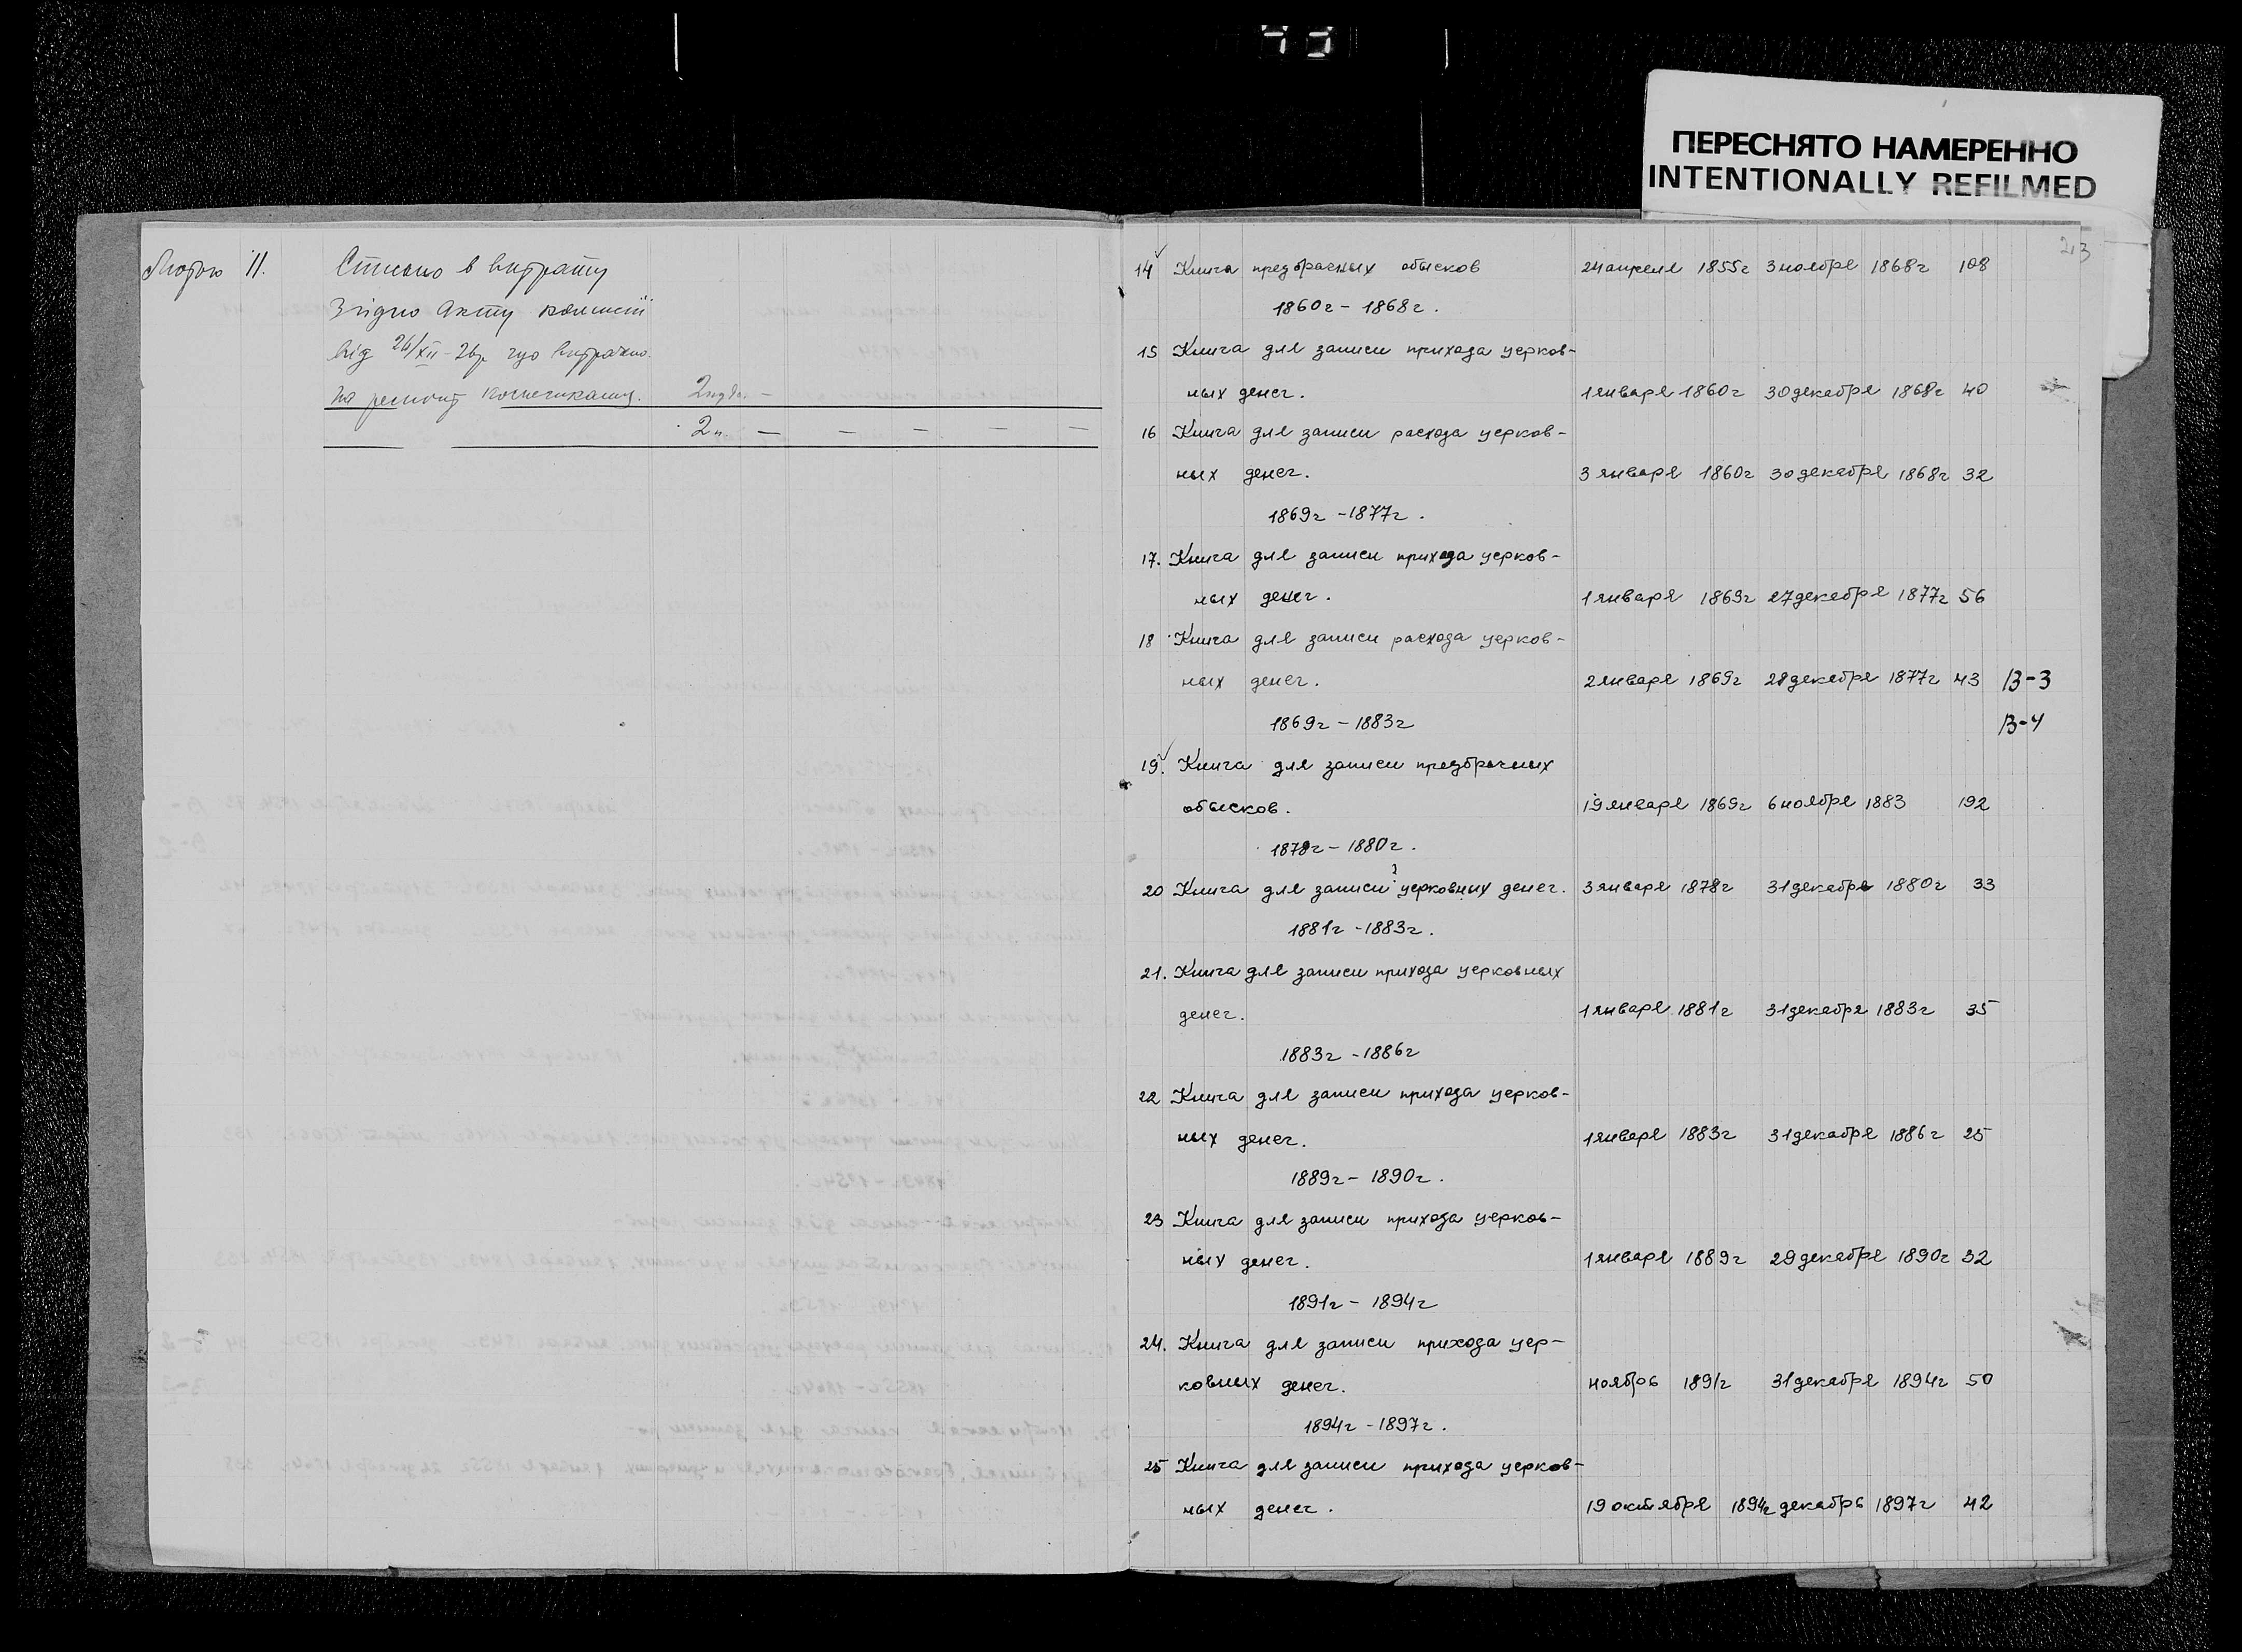 ПЕРЕСНЯТО НАМЕРЕННО
INTENTIONALLY REFILMED
23
Лютого 11. Списано в витрату
Згідно Акту комісії
від 26/XII-26р. що витрачено
на ремонт 2 пуд. –
2 п. – – – – –
14 Книга предбрачных обысков 24 апреля 1855г 3 ноября 1868г 108
1860г – 1868г.
15 Книга для записи прихода церков-
ных денег. 1 января 1860г 30 декабря 1868г 40
16 Книга для записи расхода церков-
ных денег. 3 января 1860г 30 декабря 1868г 32
1869г – 1877г.
17. Книга для записи прихода церков-
ных денег. 1 января 1869г 27 декабря 1877г 56
18 Книга для записи расхода церков-
ных денег. 2 января 1869г 28 декабря 1877г 43 В-3
1869г – 1883г В-4
19. Книга для записи предбрачных
обысков. 19 января 1869г 6 ноября 1883 192
1878г – 1880г.
20 Книга для записи ? церковных денег. 3 января 1878г 31 декабря 1880г 33
1881г – 1883г.
21. Книга для записи прихода церковных
денег. 1 января 1881г 31 декабря 1883г 35
1883г – 1886г
22 Книга для записи прихода церков-
ных денег. 1 января 1883г 31 декабря 1886г 25
1889г – 1890г.
23 Книга для записи прихода церков-
ных денег. 1 января 1889г 29 декабря 1890г 32
1891г – 1894г
24. Книга для записи прихода цер-
ковных денег. ноябрь 1891г 31 декабря 1894г 50
1894г – 1897г.
25 Книга для записи прихода церков-
ных денег. 19 октября 1894г декабрь 1897г 42